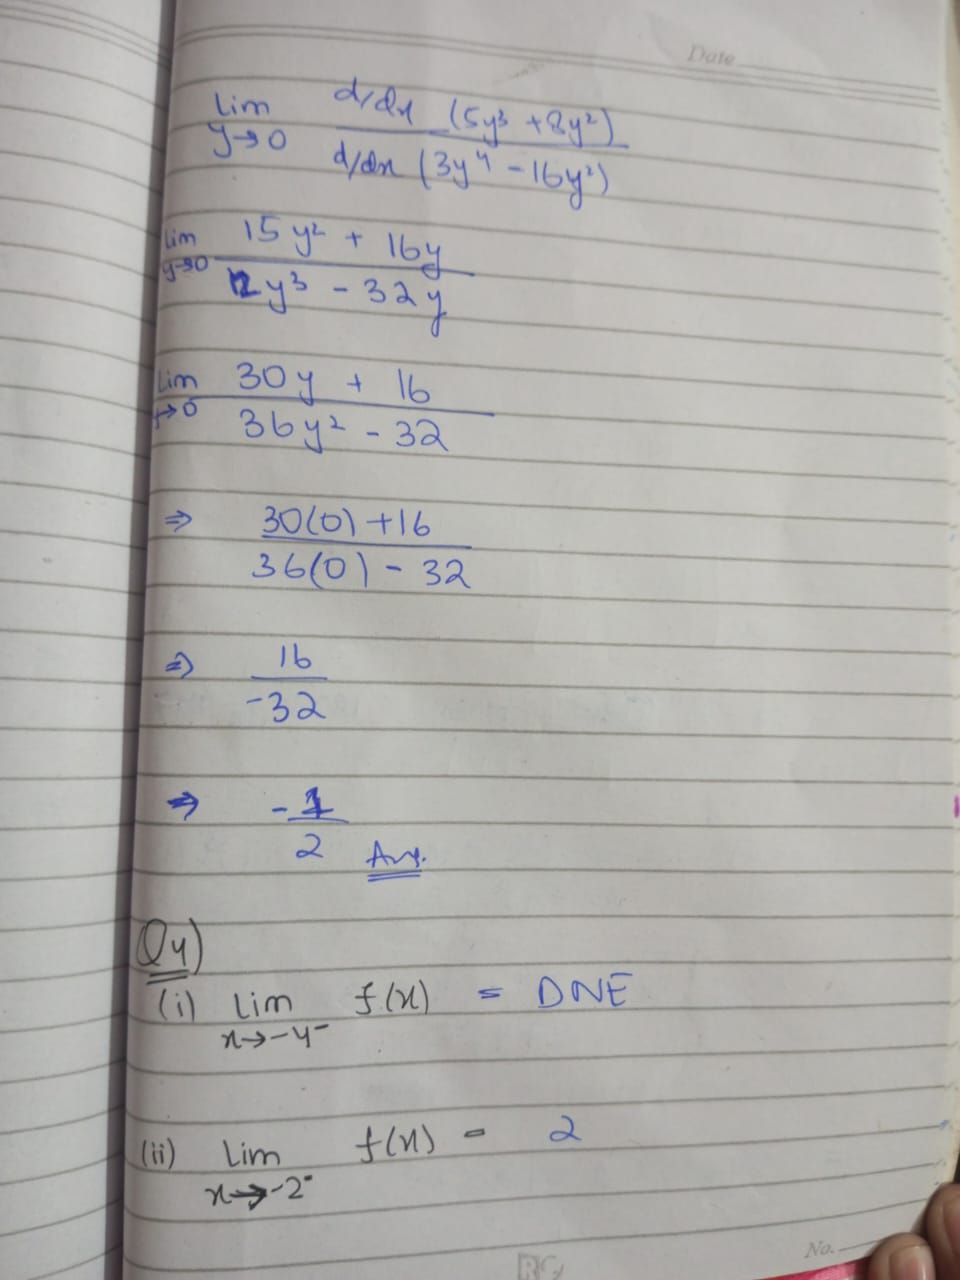 Date
Lim y→0 d/dx (5y³ + 8y²) / d/dx (3y⁴ - 16y²)
Lim y→0 15y² + 16y / 12y³ - 32y
Lim y→0 30y + 16 / 36y² - 32
⇒ 30(0) + 16 / 36(0) - 32
⇒ 16 / -32
⇒ -1 / 2 Ans.
Q4)
(i) Lim x→-4⁻ f(x) = DNE
(ii) Lim x→-2⁻ f(x) = 2
No.